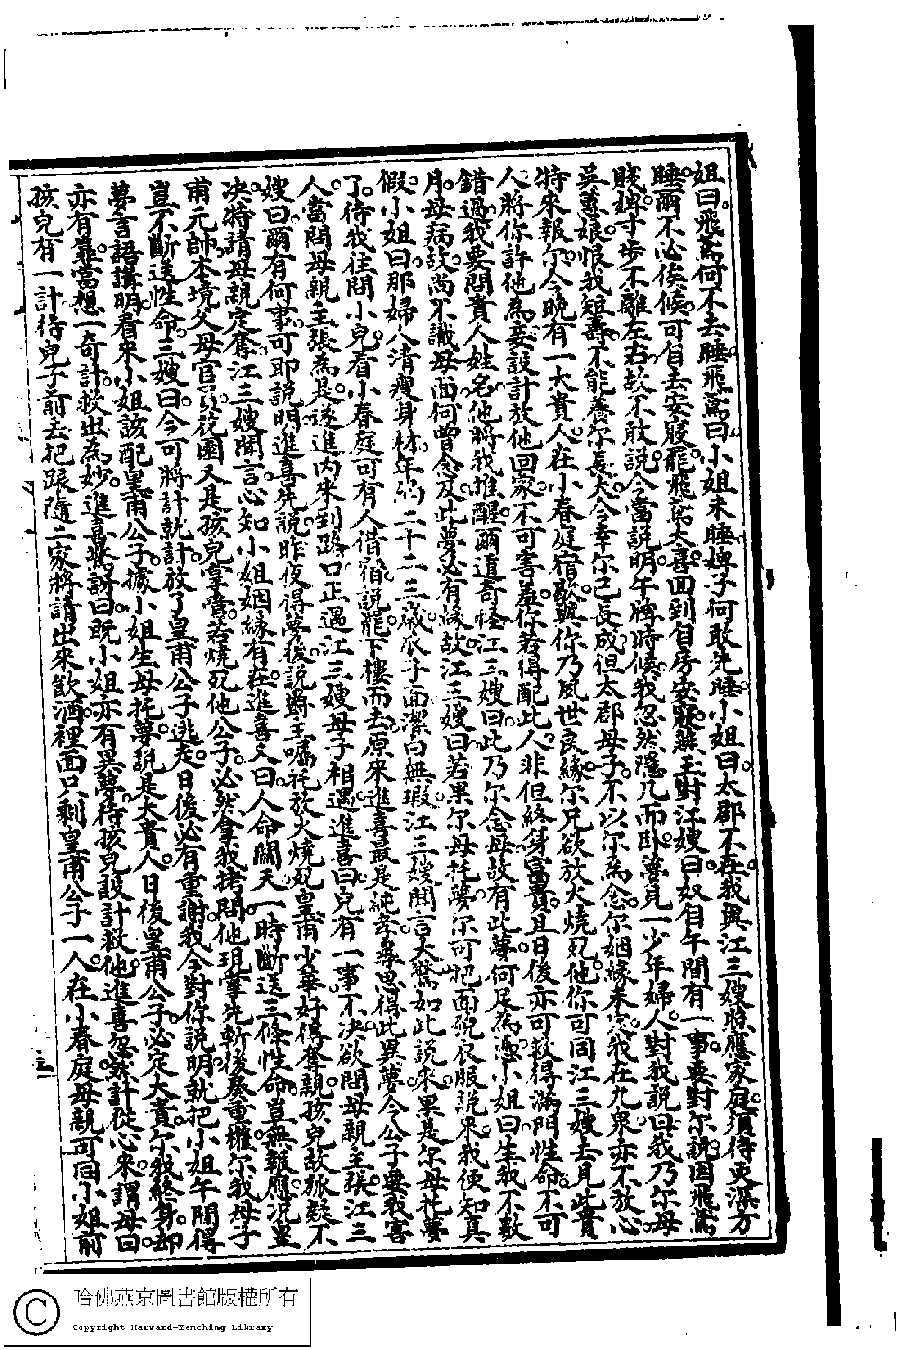 姐曰飛鴦何不去睡飛鴦曰小姐未睡婢子何敢先睡小姐曰太郡不在我與江三嫂照應家庭須待更深方
睡爾不必俟候可自去安寢罷飛鴦大喜回到自房安寢燕玉對江嫂曰奴自午間有一事要對尔說因飛鴦
賤婢寸步不離左右故不敢說今當說明午牌時候我忽然隱几而臥夢見一少年婦人對我說曰我乃尔母
吳蕙娘恨我短壽不能養尔長大今幸尔已長成但太郡母子不以尔為念尔姻緣未定我在九泉亦不放心
特來報尔今晚有一大貴人在小春庭宿歇與你乃夙世良緣尔兄欲放火燒死他你可同江三嫂去見此貴
人將你許他為妾設計放他回家不可害羞你若得配此人非但終身富貴且日後亦可救得滿門性命不可
錯過我要問貴人姓名他將我推醒爾道奇怪江三嫂曰此乃尔念母故有此夢何足為憑小姐曰生我不數
月母病故尚不識母面何曾念及此夢必有緣故江三嫂曰若果尔母托夢尔可把面貌衣服說來我便知真
假小姐曰那婦人清瘦身材年約二十二三歲瓜子面潔白無瑕江三嫂聞言大驚如此說來果是尔母托夢
了待我往問小兒看小春庭可有人借宿說罷下樓而去原來進喜最是純孝尋思得此異夢今公子要我害
人當問母親主張為是遂進內來到路口正遇江三嫂母子相遇進喜曰兒有一事不決欲問母親主張江三
嫂曰爾有何事可即說明進喜先說昨夜得夢後說爵主囑托放火燒死皇甫少華好得奪親孩兒故狐疑不
決特請母親定奪江三嫂聞言心知小姐姻緣有在進喜又曰人命關天一時斷送三條性命豈無報應況皇
甫元帥本境父母官且花園又是孩兒掌管若燒死他公子必然拿我拷問他現掌先斬後奏重權尔我母子
豈不斷送性命三嫂曰今可將計就計放了皇甫公子逃走日後必有重謝我今對你說明就把小姐午間得
夢言語講明看來小姐該配皇甫公子據小姐生母托夢說是大貴人日後皇甫公子必定大貴尔我終身却
亦有靠當想一奇計救出為妙進喜喜曰既小姐亦有異夢待孩兒設計救他進喜忽然計從心來謂母曰
孩兒有一計待兒子前去把跟隨二家將請出來飲酒裡面只剩皇甫公子一人在小春庭母親可同小姐前
哈佛燕京圖書館版權所有
Copyright Harvard-Yenching Library